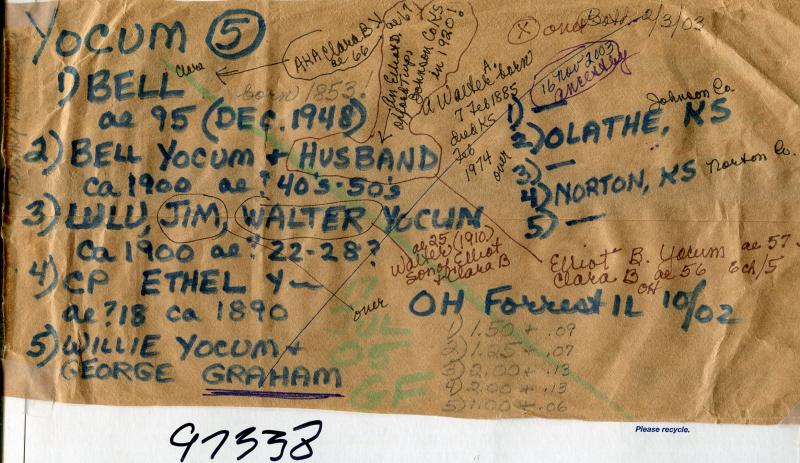 YOCUM 5
Clara
AKA Clara B Y
ae 66
1) BELL
born 1853!
ae 95 (DEC. 1948)
2) BELL YOCUM + HUSBAND
ca 1900 ae? 40's-50's
3) LULU, JIM, WALTER YOCUM
ca 1900 ae? 22-28?
4) CP ETHEL Y~
ae ?18 ca 1890
5) WILLIE YOCUM +
GEORGE GRAHAM
An Elliot D, ae 67
Johnson Co KS
in 1920!
A Walter A. born
7 Feb 1885
died KS
Feb
1974
over
X one Both 2/3/03
16 Nov 2003
ancestry
Johnson Co.
1) —
2) OLATHE, KS
3) —
4) NORTON, KS
Norton Co.
5) —
ae 25
Walter (1910)
son of Elliot
+ Clara B
Elliot B. Yocum ae 57
Clara B ae 56
OH
over
OH Forrest IL 10/02
1) 1.50 + .09
2) 1.25 + .07
3) 2.00 + .13
4) 2.00 + .13
5) 1.00 + .06
JUL
05
GF
Please recycle.
97338